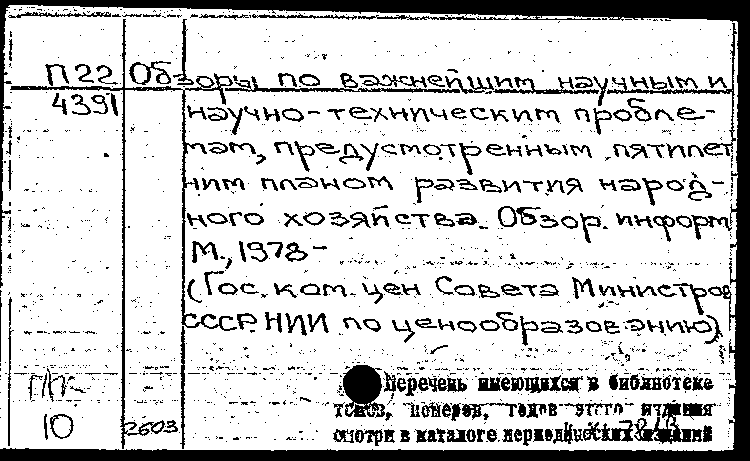 П22 Обзоры по важнейшим научным и
4391 научно-техническим пробле-
мам, предусмотренным пятилет
ним планом развития народ-
ного хозяйства. Обзор. информ
М., 1978-
(Гос. ком. цен Совета Министров
СССР. НИИ по ценообразованию)
Перечень имеющихся в библиотеке
томов, номеров, годов этого издания
10 2603 смотри в каталоге периодических изданий